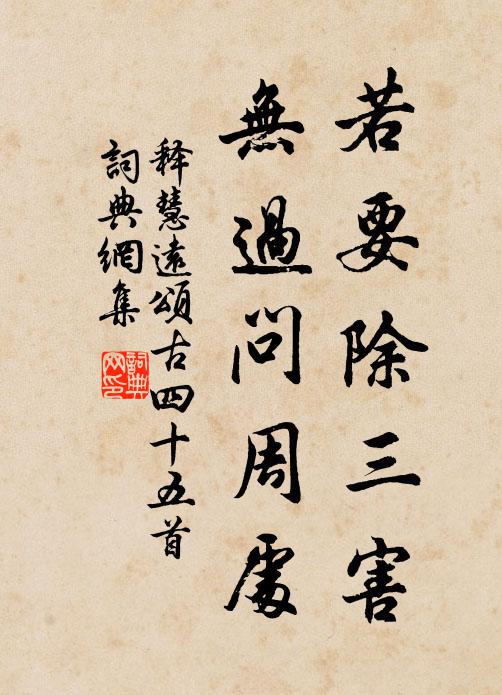 若要除三害
無過問周處
释慧遠頌古四十五首
詞典網集
詞典網印